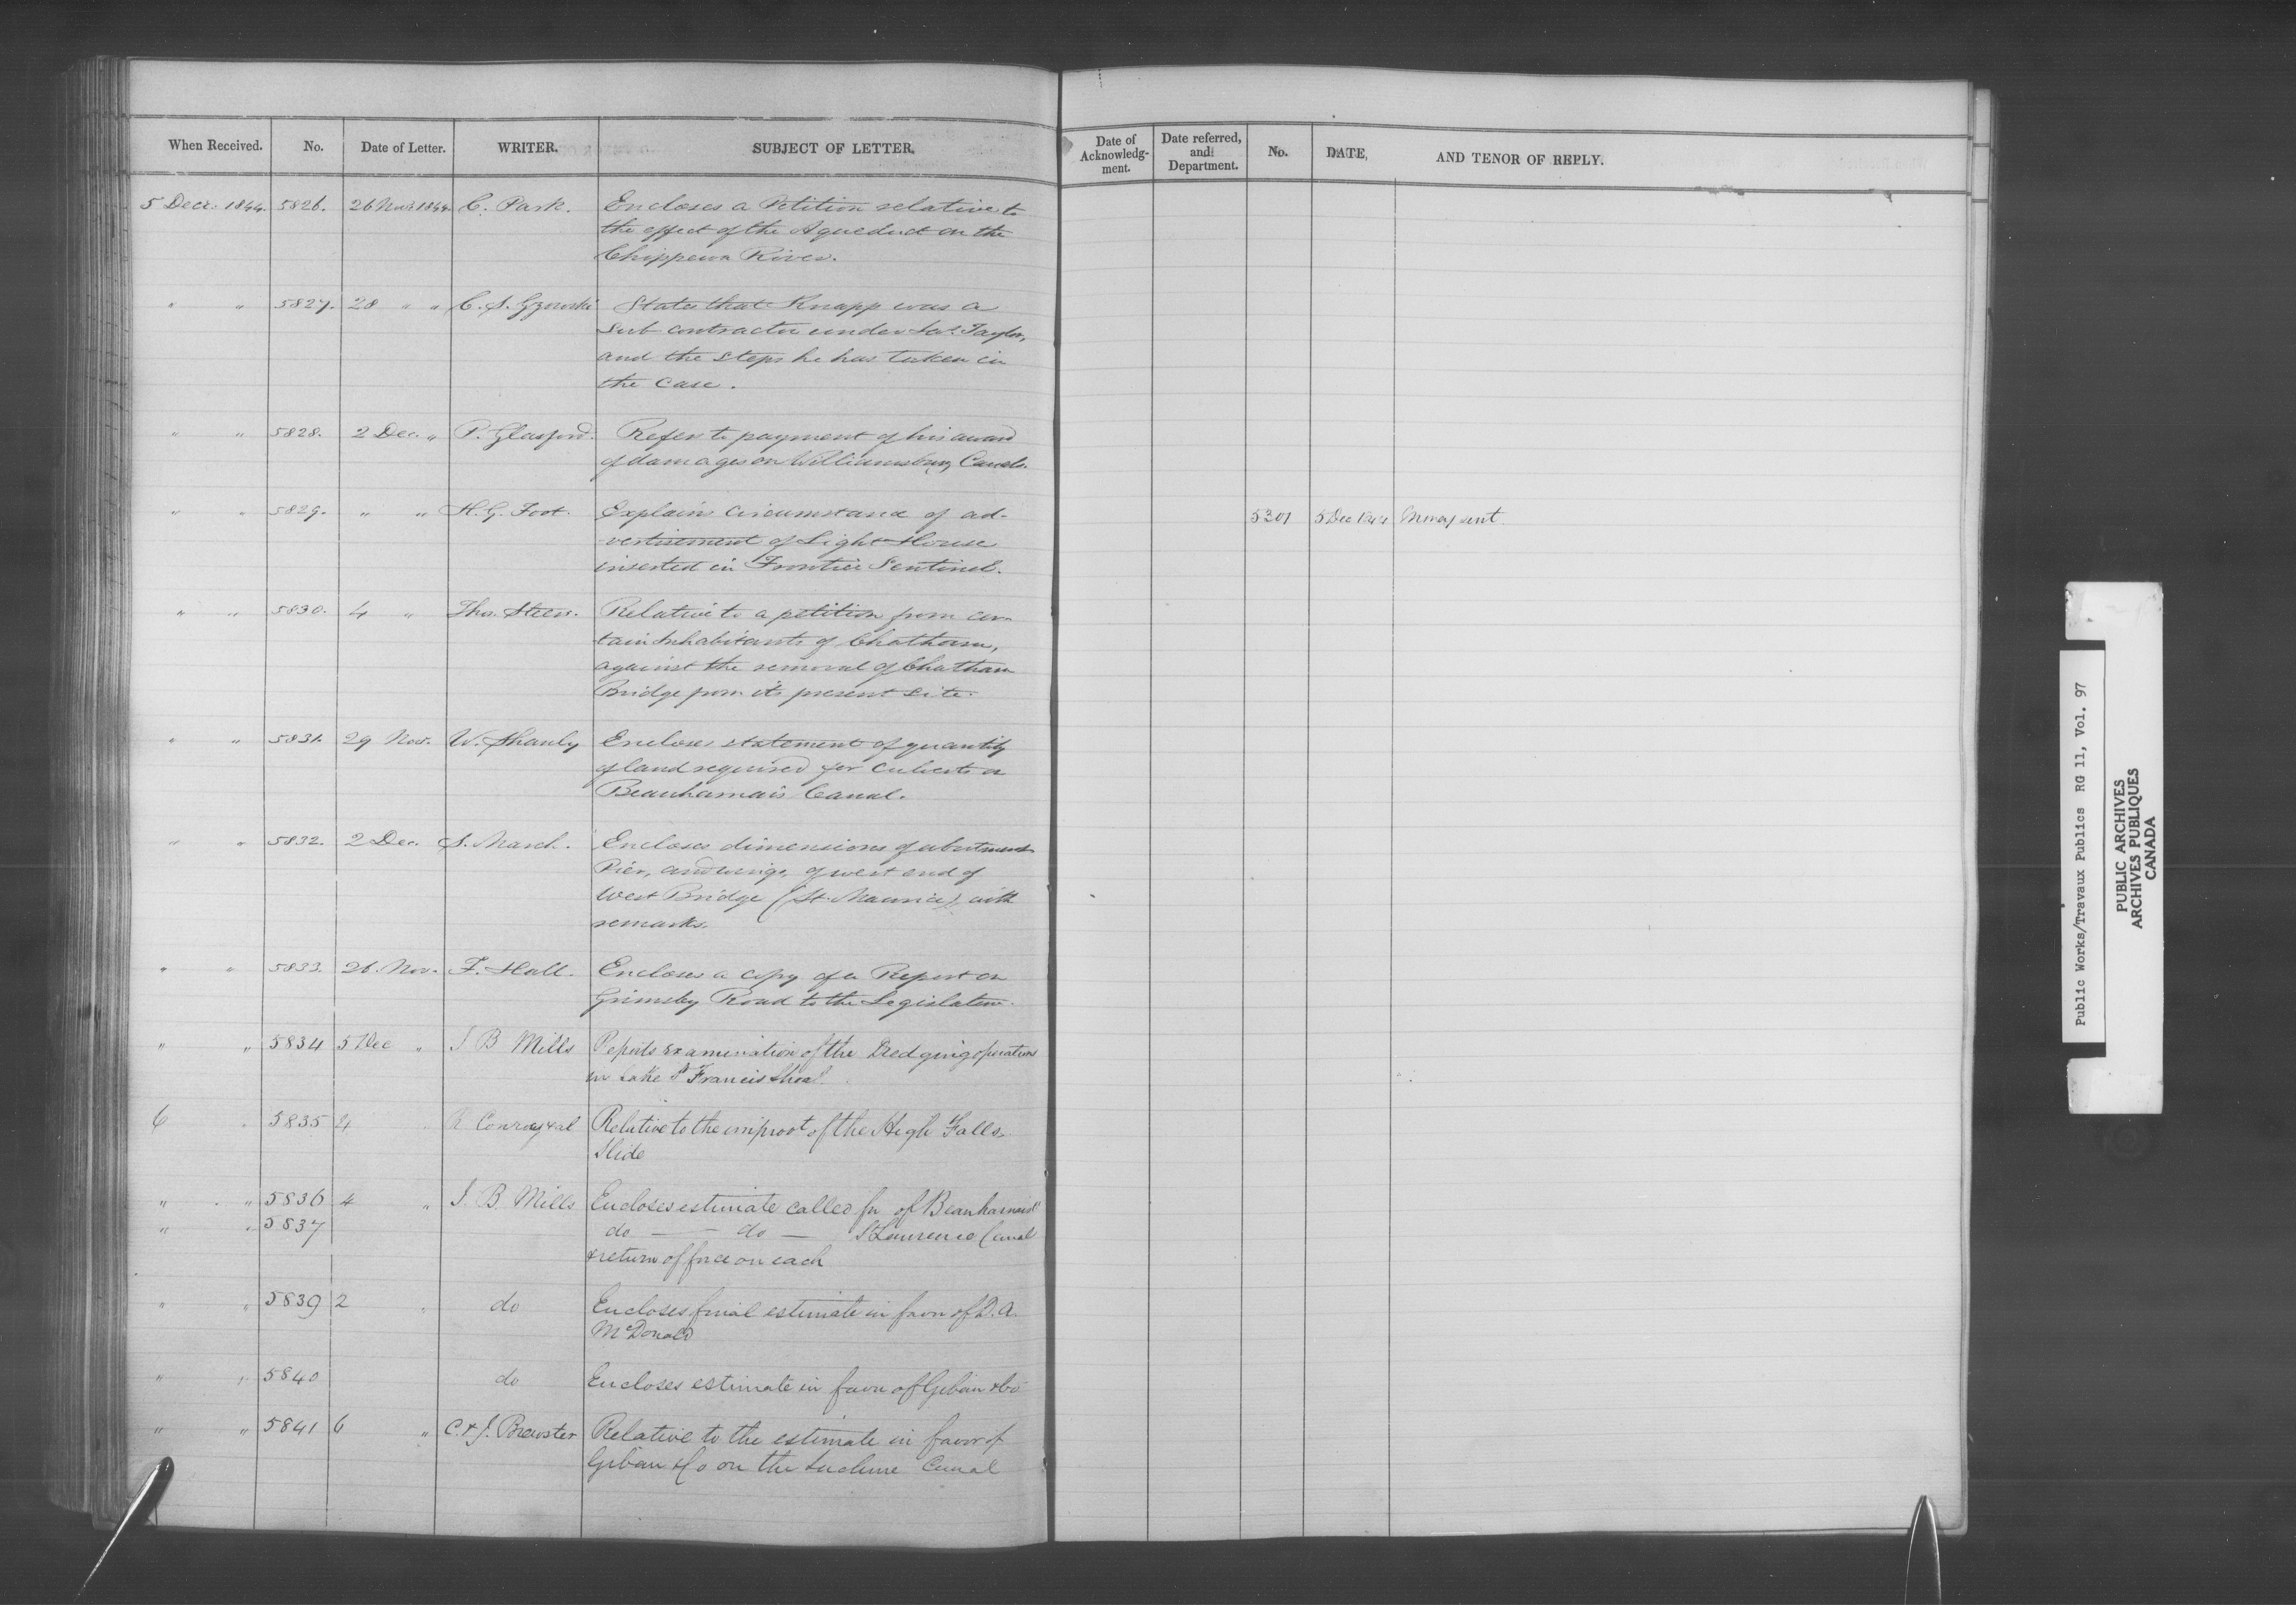 When Received. No. Date of Letter. WRITER. SUBJECT OF LETTER.
Date of Acknowledg-ment. Date referred, and Department. No. DATE, AND TENOR OF REPLY.
5 Decr. 1844. 5826. 26 Nov. 1844. C. Park. Encloses a Petition relative to
the effect of the Aqueduct on the
Chippewa River.
" " 5827. 28 " " C. S. Gzowski States that Knapp was a
Sub contractor under Taylor,
and the steps he has taken in
the case.
" " 5828. 2 Dec. " P. Glasford. Refers to payment of his award
of damages on Williamsburg Canals.
" " 5829. " " H. G. Foot. Explains circumstance of ad-
vertisement of Light House
inserted in Frontier Sentinel.
5301 5 Dec 1844 Money sent.
" " 5830. 4 " Thos. Steers. Relative to a petition from cer-
tain Inhabitants of Chatham,
against the removal of Chatham
Bridge from its present site.
" " 5831. 29 Nov. W. Shanly Encloses statement of quantity
of land required for Culverts on
Beauharnais Canal.
" " 5832. 2 Dec. S. March. Encloses dimensions of abutment
Pier, and wings, of west end of
West Bridge (St. Maurice), with
remarks.
" " 5833. 26. Nov. F. Hall. Encloses a copy of a Report on
Grimsby Road to the Legislature.
" " 5834 5 Dec " J B Mills Reports examination of the Dredging operations
in Lake St Francis Shoal.
6 " 5835 4 " R Conroy & al Relative to the improvt of the High Falls
Slide
" " 5836 4 " J. B Mills Encloses estimate called for of Beauharnois
" " 5837 do — do — St Lawrence Canal
& return of force on each
" " 5839 2 " do Encloses final estimate in favor of D. A.
McDonald
" " 5840 do Encloses estimate in favor of & Co
" " 5841 6 " C. & J. Brewster Relative to the estimate in favor of
& Co on the Lachine Canal
Public Works/Travaux Publics RG 11, Vol. 97
PUBLIC ARCHIVES
ARCHIVES PUBLIQUES
CANADA